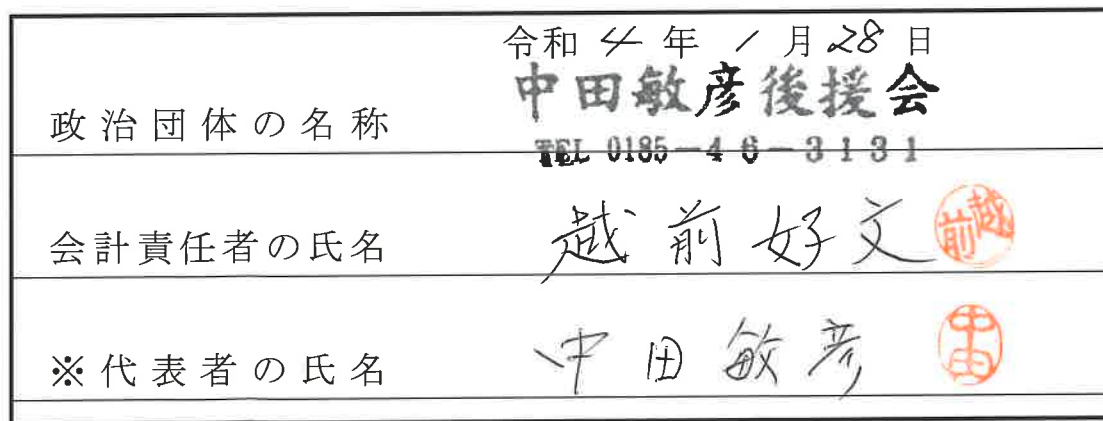 令和4年1月28日
政治団体の名称 中田敏彦後援会
TEL 0185-46-3131
会計責任者の氏名 越前好文 越前
※代表者の氏名 中田敏彦 中田